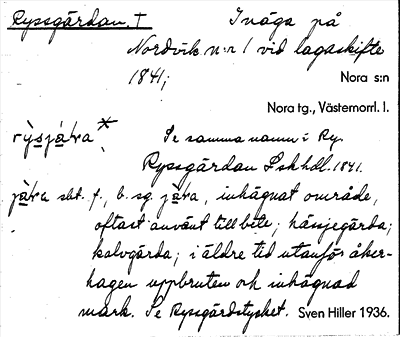 Ryssgårdan †
Inäga på
Nordvik n:r 1 vid lagaskifte
1841;
Nora s:n
Nora tg., Västernorrl. l.
Se samma namn i Ry.
Ryssgårdan Lskhdl. 1841.
sbt. f., b. sg. inhägnat område,
oftast använt till bete; hässjegärda;
kalvgärda; i äldre tid utanför åker-
hagen uppbruten och inhägnad
mark. Se Ryssgårdstycket. Sven Hiller 1936.